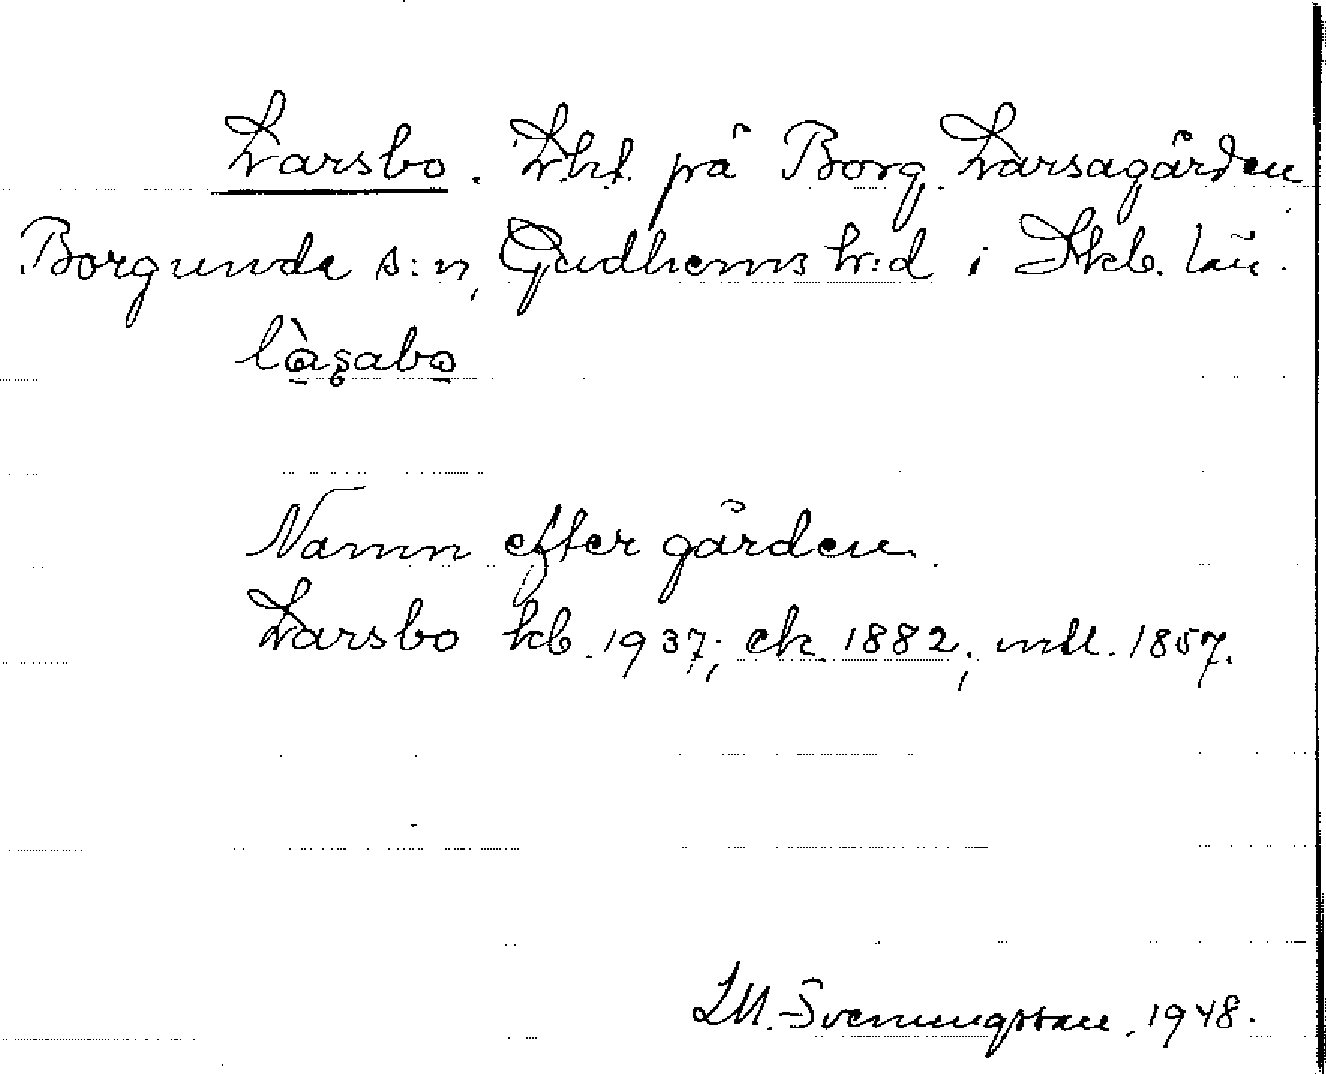 Larsbo. Lht. på Borg Larsagården
Borgunda s:n, Gudhems h:d i Skb. län.
làʂabo
Namn efter gården.
Larsbo kb. 1937; ek. 1882; mtl. 1857.
LM. Svenungsson. 1948.